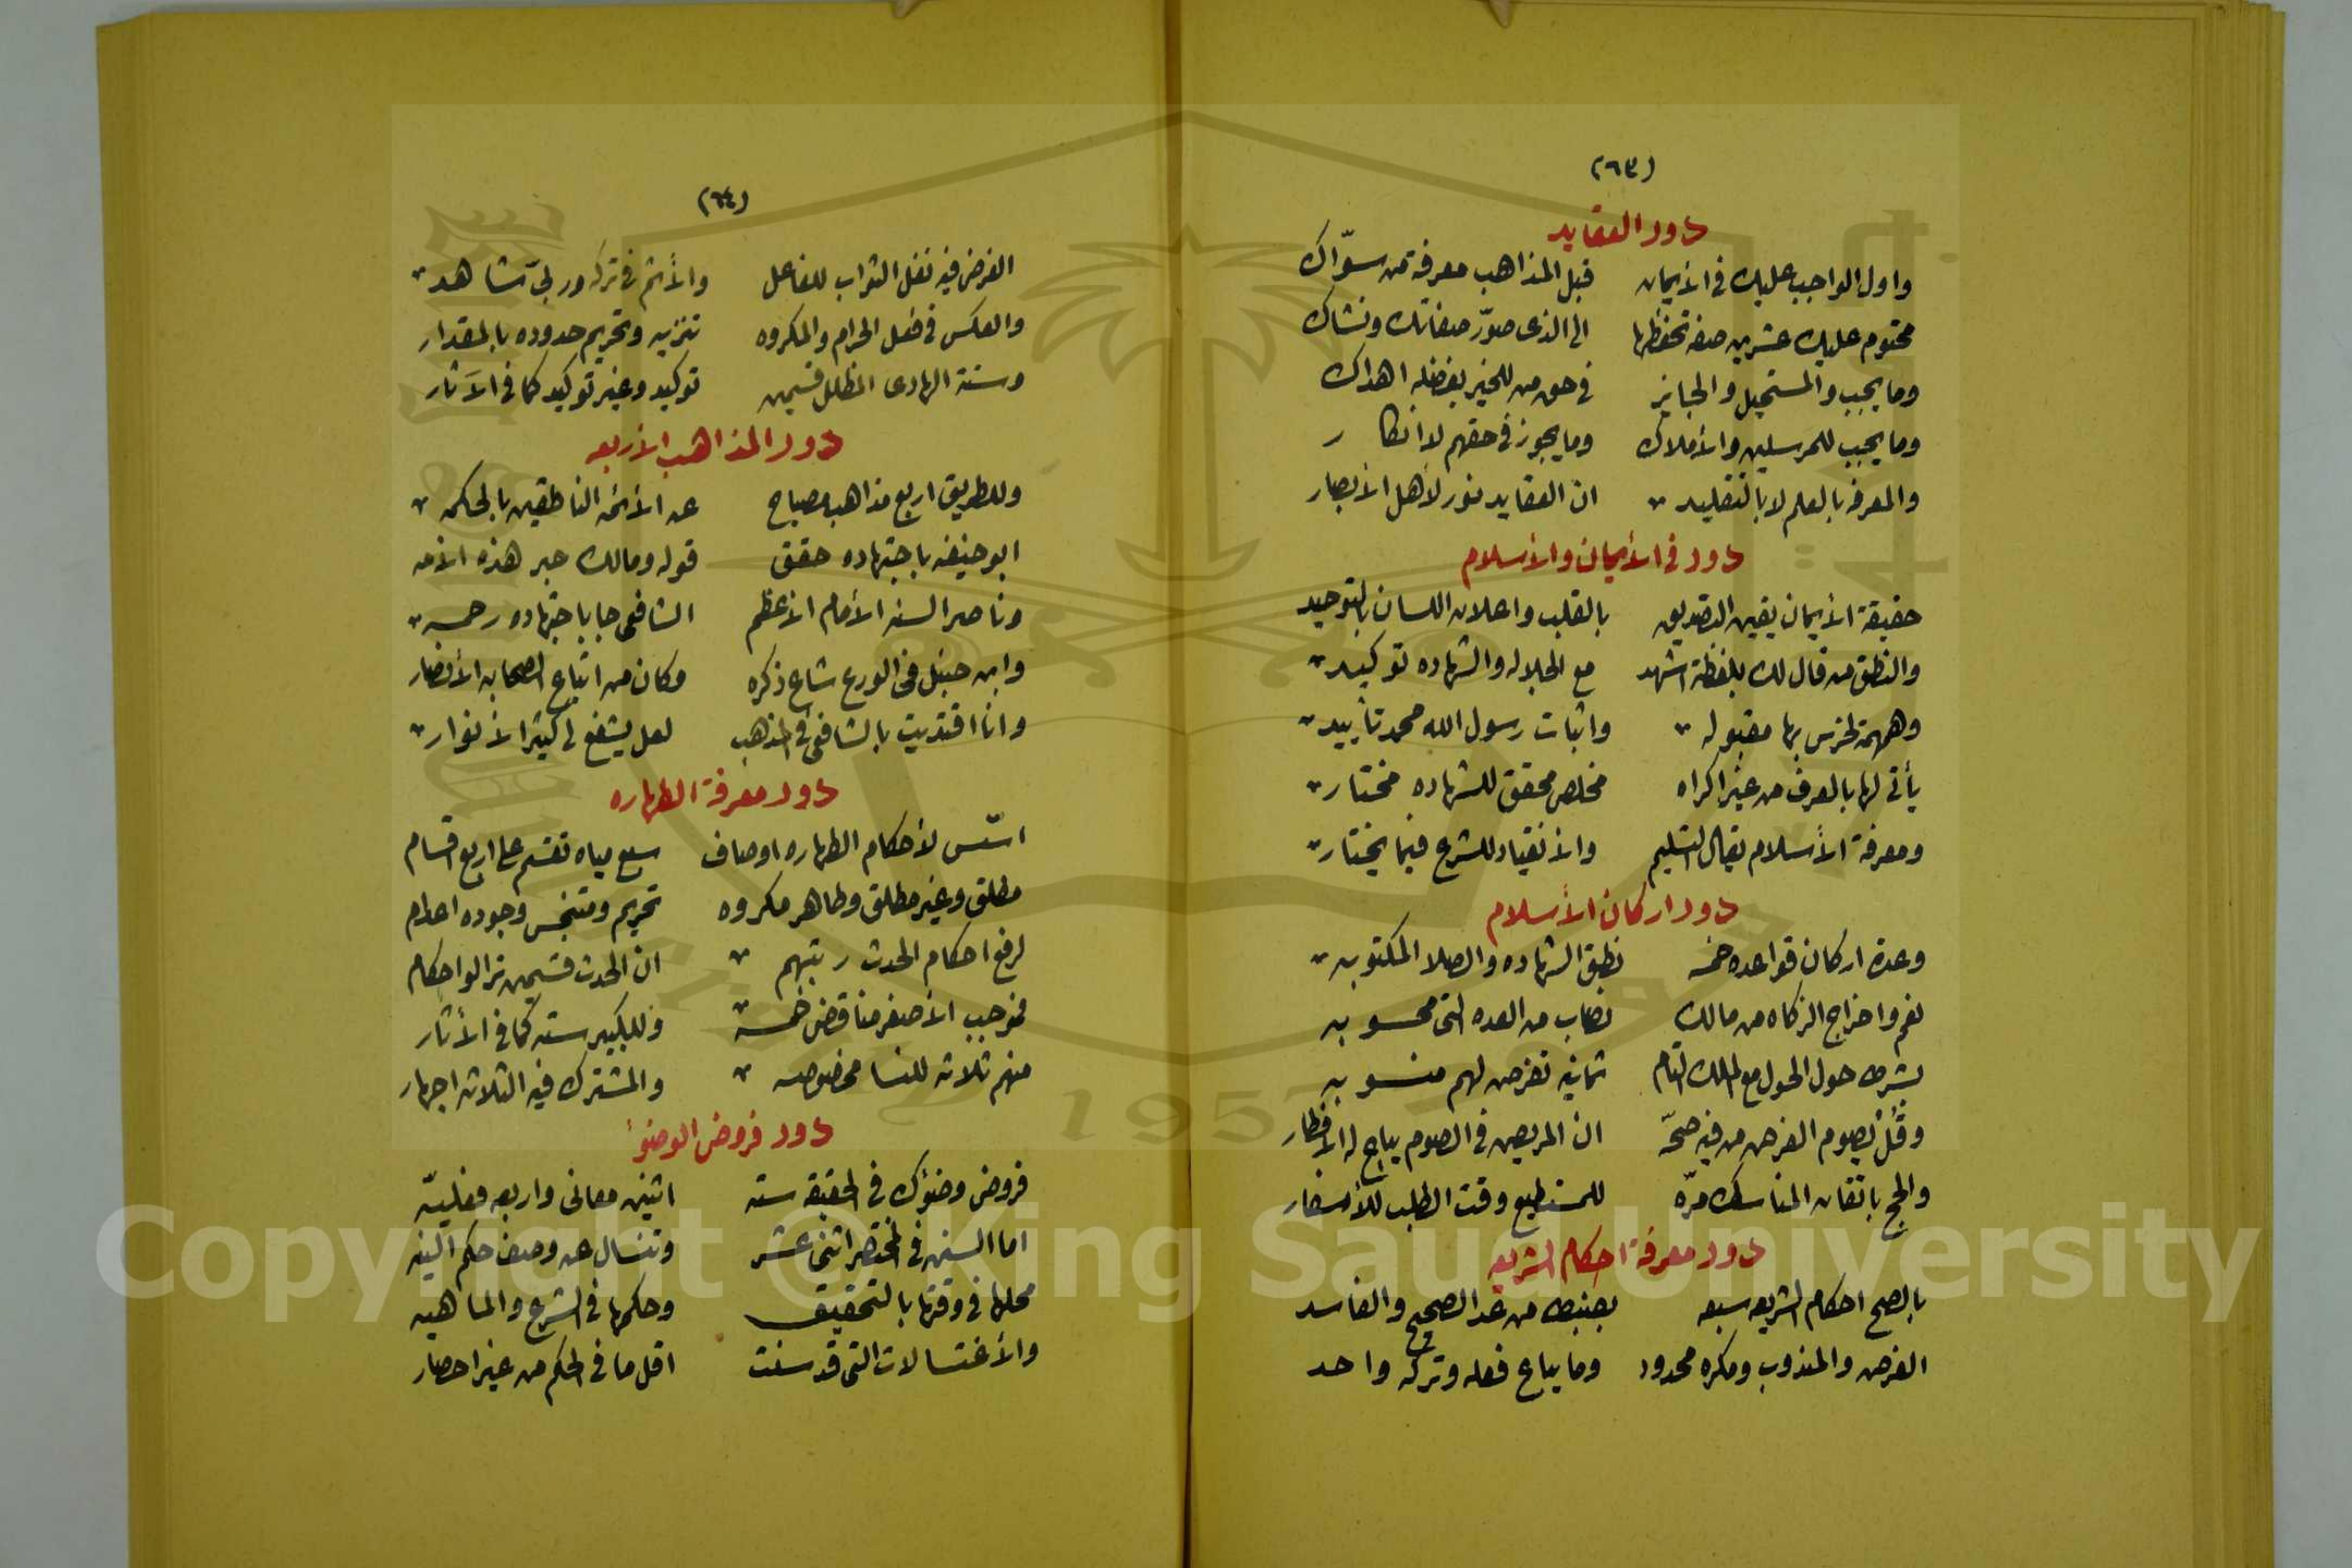 (٦٣)
دور العقايد
واول الواجب عليك في الأيمان قبل المذاهب معرفة من سوّاك
محتوم عليك عشرين صفه تحفظها الى الذى صوّر صفاتك ونشاك
وما يجب والمستحيل والجايز في حق من للخير بفضله اهداك
وما يجب للمرسلين والأملاك وما يجوز في حقهم لا انكار
والمعرفه بالعلم لا بالتقليد ان العقايد نور لأهل الأبصار
دور في الأيمان والأسلام
حقيقة الأيمان يقين التصديق بالقلب واعلان اللسان بالتوحيد
والنطق من قال لك بلفظة اشهد مع الجلاله والشهاده توكيد
وهمهمة لخرس بها مقبوله واثبات رسول الله محمد تأييد
يأتى لها بالعرف من غير اكراه مخلص محقق للشهاده مختار
ومعرفة الأسلام يقال التسليم والأنقياد للشرع فيما يختار
دور اركان الأسلام
وعدة اركان قواعده خمسه نطق الشهاده والصلا المكتوبه
نعم واخراج الزكاه من مالك نصاب من العده التى محسوبه
بشرط حول الحول مع الملك التام ثمانيه تفرض لهم منسوبه
وقُل يصوم الفرض من فيه صحّه ان المريض في الصوم يباح له الأفطار
والحج باتقان المناسك مرّه للمستطيع وقت الطلب للأسفار
دور معرفة احكام الشريعه
بالصح احكام الشريعه سبعه بضبط من عد الصحيح والفاسد
الفرض والمندوب ومكره محدود وما يباح فعله وتركه واحد
(٦٤)
الفرض فيه نفل الثواب للفاعل والأثم في تركه ور بىّ شاهد
والعكس في فعل الحرام والمكروه تنزيه وتحريم حدوده بالمقدار
وسنة الهادى المظلل قسمين توكيد وغير توكيد كما في الآثار
دور المذاهب الأربعه
وللطريق اربع مذاهب مصباح عن الأئمه الناطقين بالحكمه
ابو حنيفه باجتهاده حقق قوله ومالك حبر هذه الأمه
وناصر السنه الأمام الأعظم الشافعى جا باجتهاده رحمه
وابن حنبل في الورع شاع ذكره وكان من اتباع الصحابه الأنصار
وانا اقتديت بالشافعى في المذهب لعل يشفع لى كثير الأنوار
دور معرفة الطهاره
اسّس لأحكام الطهاره اوصاف سبع مياه تقسم على اربع اقسام
مطلق وغير مطلق وطاهر مكروه تحريم ومتنجس وجوده اعدام
لرفع احكام الحدث رتبهم ان الحدث قسمين نزالوا حكام
فموجب الأصغر مناقض خمسه وللكبير سته كما في الأثار
منهم ثلاثه للنسا مخصوصه والمشترك فيه الثلاثه اجهار
دور فروض الوضوء
فروض وضوئك في الحقيقه سته اثنين معانى واربعه فعليّه
اما السنن في المختصر اثنى عشر وتنسال عن وصف حكم النيه
محلها في وقتها بالتحقيق وحكمها في الشرع والماهيه
والأغتسالات التى قد سنت اقل ما في الحكم من غير احصار
Copyright © King Saud University
1957